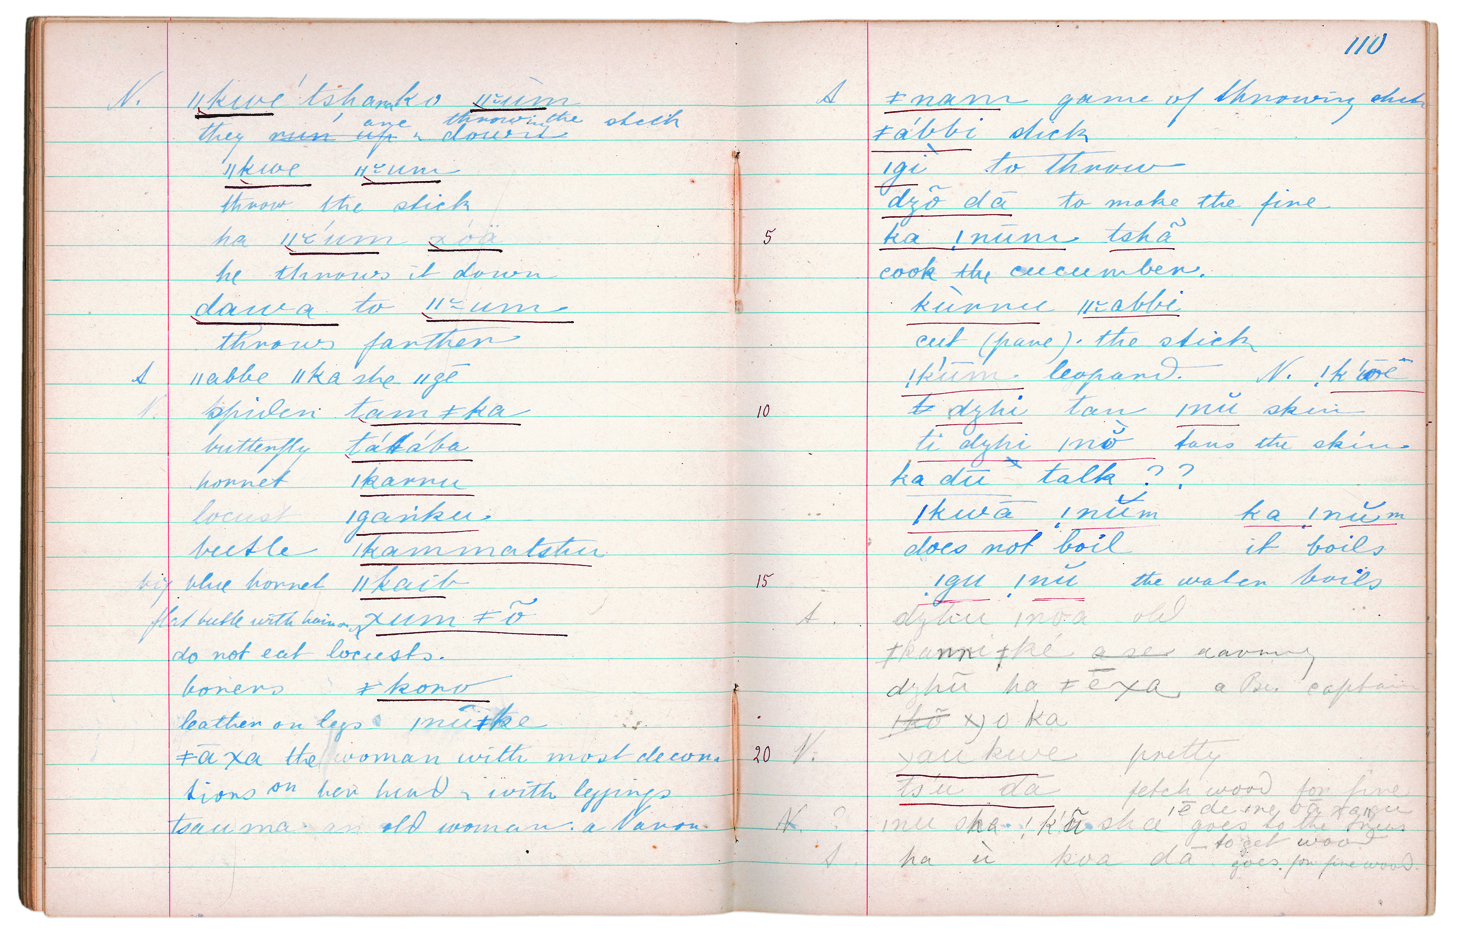 N. ǁkwe' tshanko ǁ˘ùm
they ~~run up~~ are & down throwing the stick
ǁkwe ǁ˘um
throw the stick
ha ǁ˘'um xóä
he throws it down
dawa to ǁ˘um
throws farther
A ǁabbe ǁka she ǁgē
N. spider tam ǂka
butterfly tátába
hornet ǀkarru
locust ǀgaṅku
beetle ǀkammatshu
big blue hornet ǁkaib
flat beetle with xum ǂõ
do not eat locusts.
borers ǂkoro
leather on legs ǀnūǂke
ǂā xa the woman with most decora
tions on her head & with leggings
tsau ma an old woman. a Naron
110
A ǂnam game of throwing stick
ǂábbi stick
ǀgì to throw
dzõ dā to make the fire
5 ka ǃnūm tshã
cook the cucumber.
kùrru ǁ˘abbi
cut (pare). the stick
ǃkūm. leopard. N. ǃk'õē
10 dzhi tan ǀnŭ skin
ti dzhi ǀnŏ tans the skin
ka dū talk ??
ǀkwā ǃnŭm ka ǃnŭm
does not boil it boils
15 ǃgu ǃnŭ the water boils
A. dzhu ǀnoa old
ǂkanni ǂké
dzhū ha ǂēxa, a Bu. captain
~~ǀkõ~~ xjo ka
20 N. xau kwe pretty
tsu dā fetch wood for fire
N. ? ǀnu sha ǃk'ũ sha goes to the trees
to get wood
A. ha ù koa dā goes for firewood.